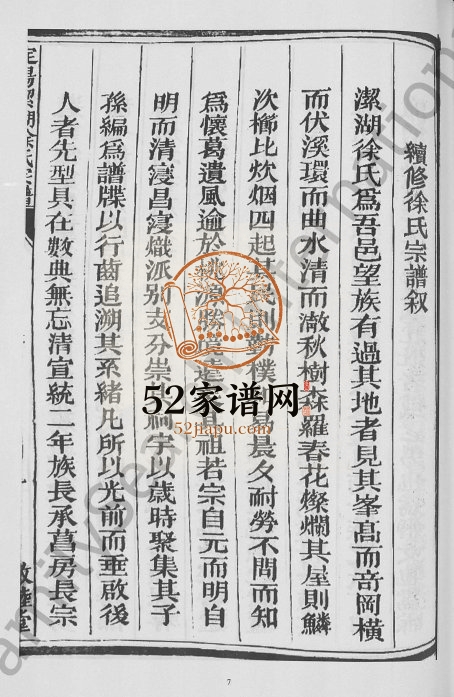 續修徐氏宗譜叙
潔湖徐氏爲吾邑望族有過其地者見其峯高而奇岡橫
而伏溪環而曲水清而澈秋樹森羅春花燦爛其屋則鱗
次櫛比炊烟四起其民則勤樸 易晨夕耐勞不問而知
爲懷葛遺風逾於桃源勝境 祖若宗自元而明自
明而清寖昌寖熾派别支分崇 祠宇以歲時聚集其子
孫編爲譜牒以行齒追溯其系緒凡所以光前而垂啟後
人者先型具在數典無忘清宣統二年族長承萬房長宗
潔湖徐氏宗譜
敦睦堂
52家谱网
52jiapu.com
familysearch international
7